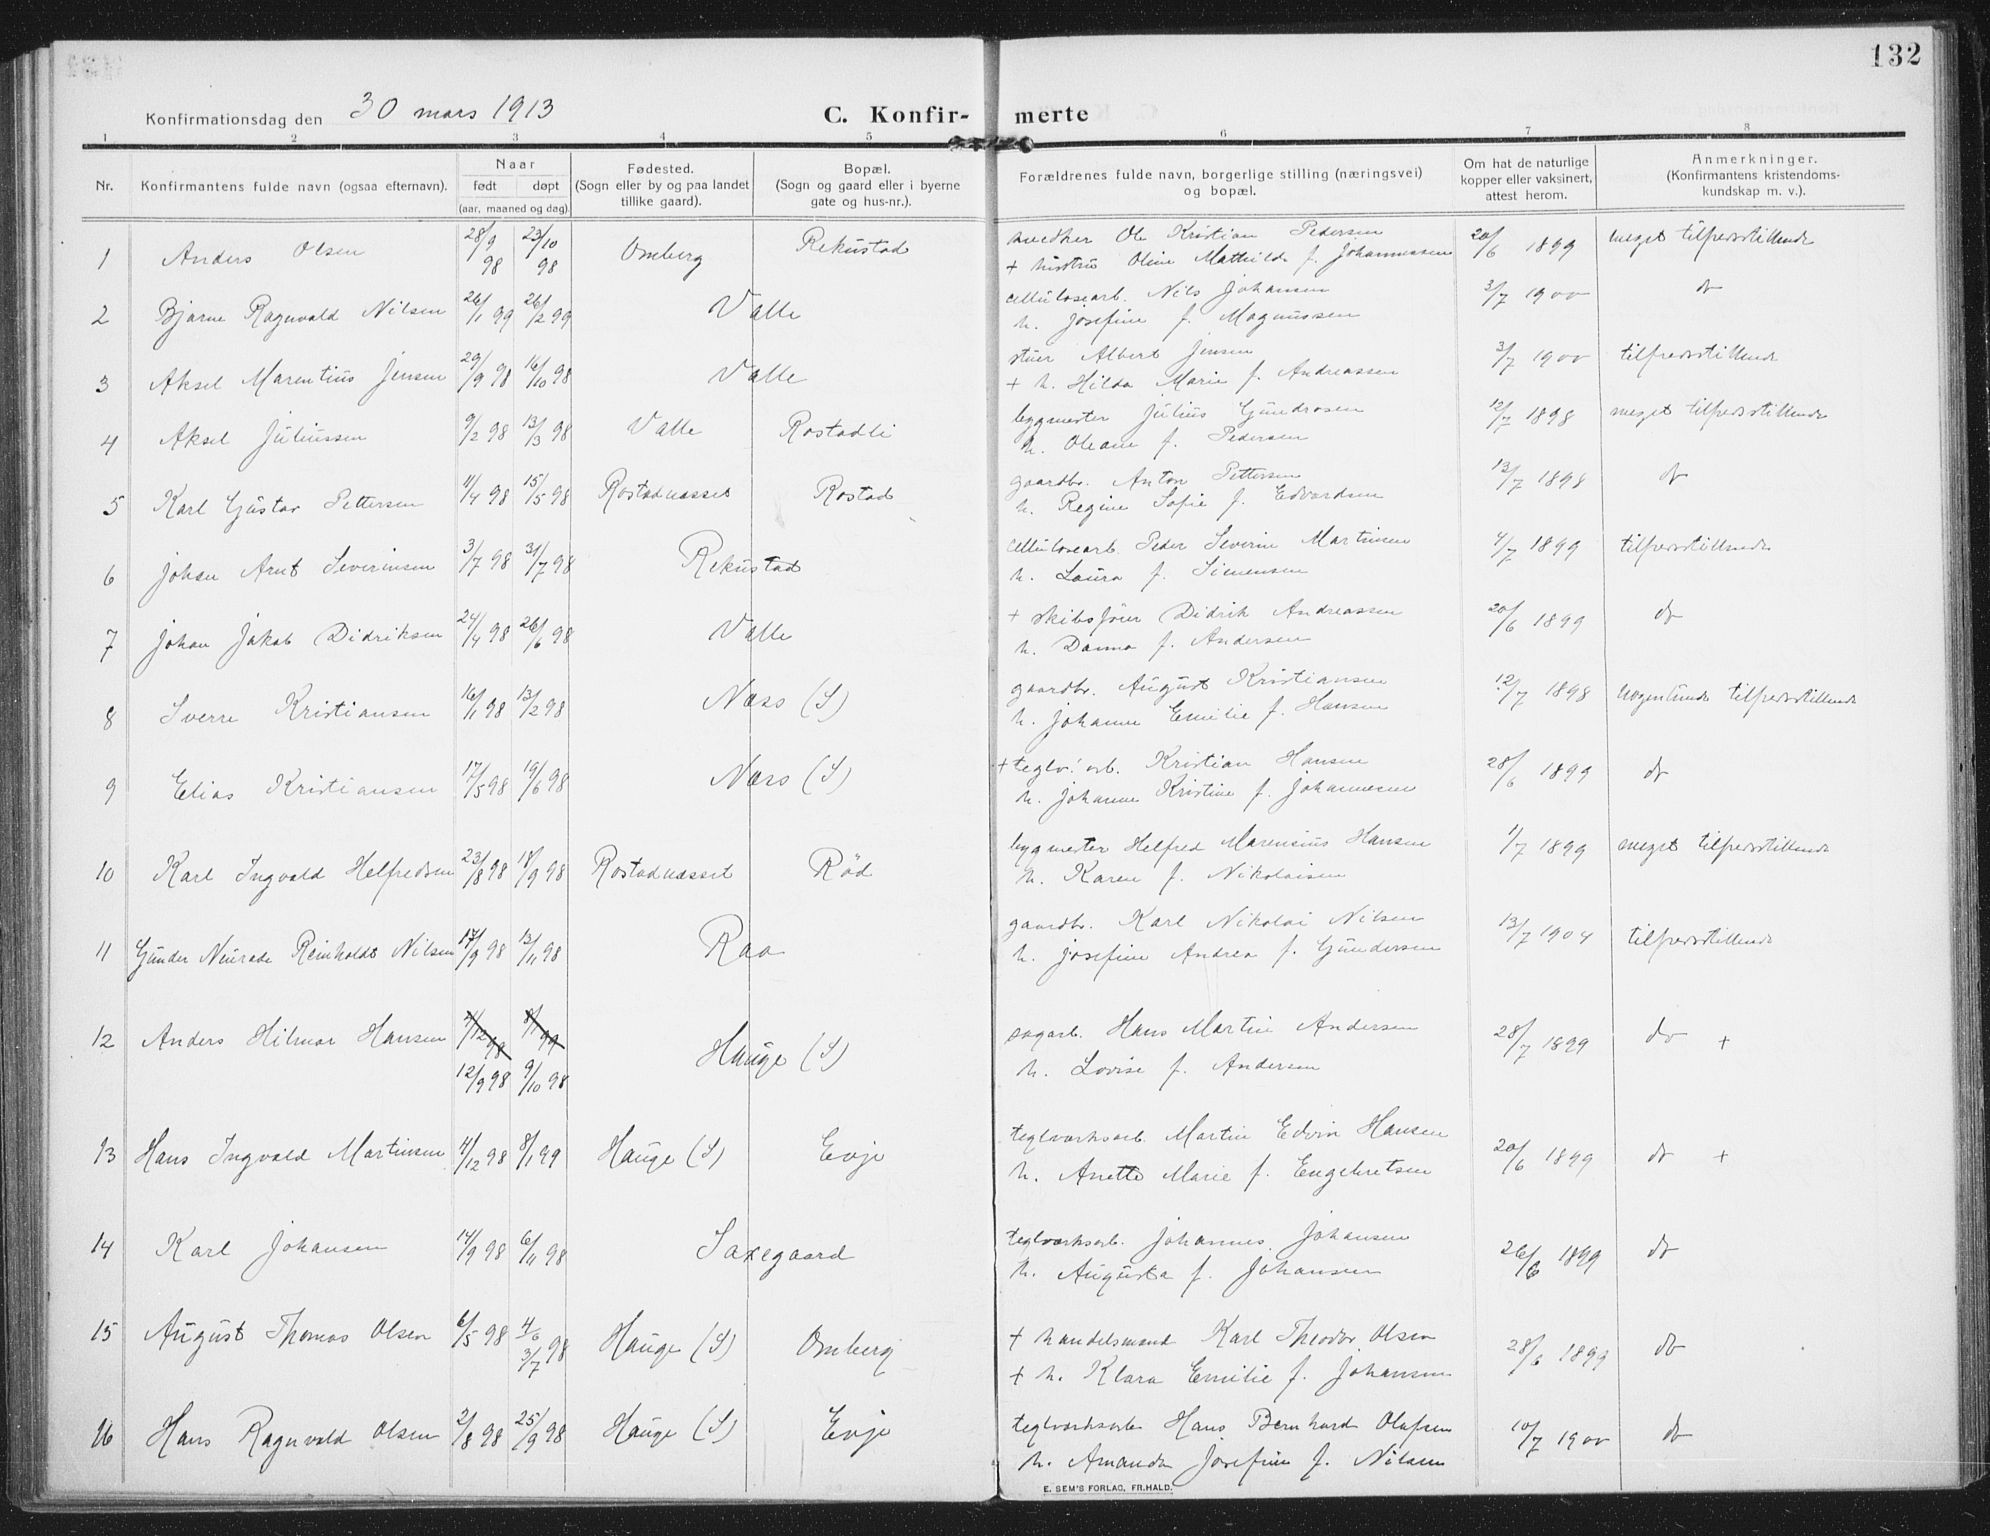 132
Konfirmationsdag den 30 mars 1913
C. Konfir- merte
1 2 3 4 5 6 7 8
Nr.
Konfirmantens fulde navn (ogsaa efternavn).
Naar
født døpt
(aar, maaned og dag).
Fødested.
(Sogn eller by og paa landet
tillike gaard).
Bopæl.
(Sogn og gaard eller i byerne
gate og hus-nr.).
Forældrenes fulde navn, borgerlige stilling (næringsvei)
og bopæl.
Om hat de naturlige
kopper eller vaksinert,
attest herom.
Anmerkninger.
(Konfirmantens kristendoms-
kundskap m. v.).
1 Anders Olsen 28/9 98 23/10 98 Omberg Rekustad Ole Kristian Pedersen 20/6 1899 meget tilfredsstillende
+ hustru Oline Mathilde f. Johannessen
2 Bjarne Ragnvald Nilsen 26/1 99 26/2 99 Valle cellulosearb. Nils Johansen 3/7 1900 do
h. Josefine f. Magnussen
3 Aksel Marentius Jensen 29/9 98 16/10 98 Valle stuer Albert Jensen 3/7 1900 tilfredsstillende
+ h. Hilda Marie f. Andreassen
4 Aksel Juliussen 9/2 98 13/3 98 Valle Rostadli bygmester Julius Gundrosen 12/7 1898 meget tilfredsstillende
h. Oleane f. Pedersen
5 Karl Gustav Pettersen 11/4 98 15/5 98 Rostadnæsset Rostad gaardbr. Anton Pettersen 13/7 1898 do
h. Regine Sofie f. Edvardsen
6 Johan Arnt Severinsen 3/7 98 31/7 98 Rekustad cellulosearb. Peder Severin Martinsen 4/7 1899 tilfredsstillende
h. Laura f. Simensen
7 Johan Jakob Didriksen 24/4 98 26/6 98 Valle + skibsfører Didrik Andreassen 20/6 1899 do
h. Danna f. Andersen
8 Sverre Kristiansen 16/1 98 13/2 98 Næss (S) gaardbr. August Kristiansen 12/7 1898 nogenlunde tilfredsstillende
h. Johanne Emilie f. Hansen
9 Elias Kristiansen 17/5 98 19/6 98 Næss (S) + teglv. arb. Kristian Hansen 28/6 1899 do
h. Johanne Kristine f. Johannesen
10 Karl Ingvald Helfredsen 23/8 98 18/9 98 Rostadnæsset Röd bygmester Helfred Marensius Hansen 1/7 1899 meget tilfredsstillende
h. Karen f. Nikolaisen
11 Gunder Neurade Reinholdt Nilsen 17/9 98 13/11 98 Raa gaardbr. Karl Nikolai Nilsen 13/7 1904 tilfredsstillende
h. Josefine Andrea f. Gundersen
12 Anders Hilmar Hansen 4/12 98 8/1 99 Hauge (S) sagarb. Hans Martin Andersen 28/7 1899 do +
12/9 98 9/10 98 h. Lovise f. Andersen
13 Hans Ingvald Martinsen 4/12 98 8/1 99 Hauge (S) Evje teglværksarb. Martin Edvin Hansen 20/6 1899 do +
h. Anette Marie f. Engebretsen
14 Karl Johansen 14/9 98 6/11 98 Saxegaard teglværksarb. Johannes Johansen 26/6 1899 do
h. Augusta f. Johansen
15 August Thomas Olsen 6/5 98 4/6 3/7 98 Hauge (S) Omberg + handelsmand Karl Theodor Olsen 28/6 1899 do
+ h. Klara Emilie f. Johansen
16 Hans Ragnvald Olsen 2/8 98 25/9 98 Hauge (S) Evje teglværksarb. Hans Bernhard Olafsen 10/7 1900 do
h. Amanda Josefine f. Nilsen
E. SEM'S FORLAG, FR.HALD.